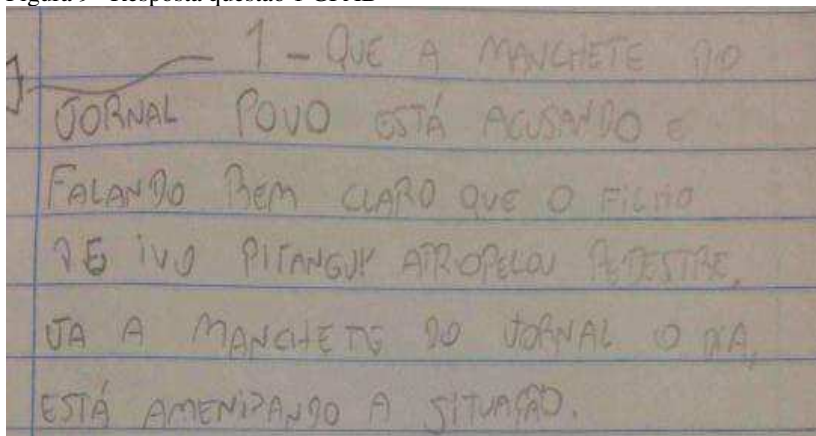 1 - QUE A MANCHETE DO
JORNAL POVO ESTÁ ACUSANDO E
FALANDO BEM CLARO QUE O FILHO
DE IVO PITANGUY ATROPELOU PEDESTRE,
JA A MANCHETE DO JORNAL O DIA,
ESTÁ AMENIZANDO A SITUAÇÃO.